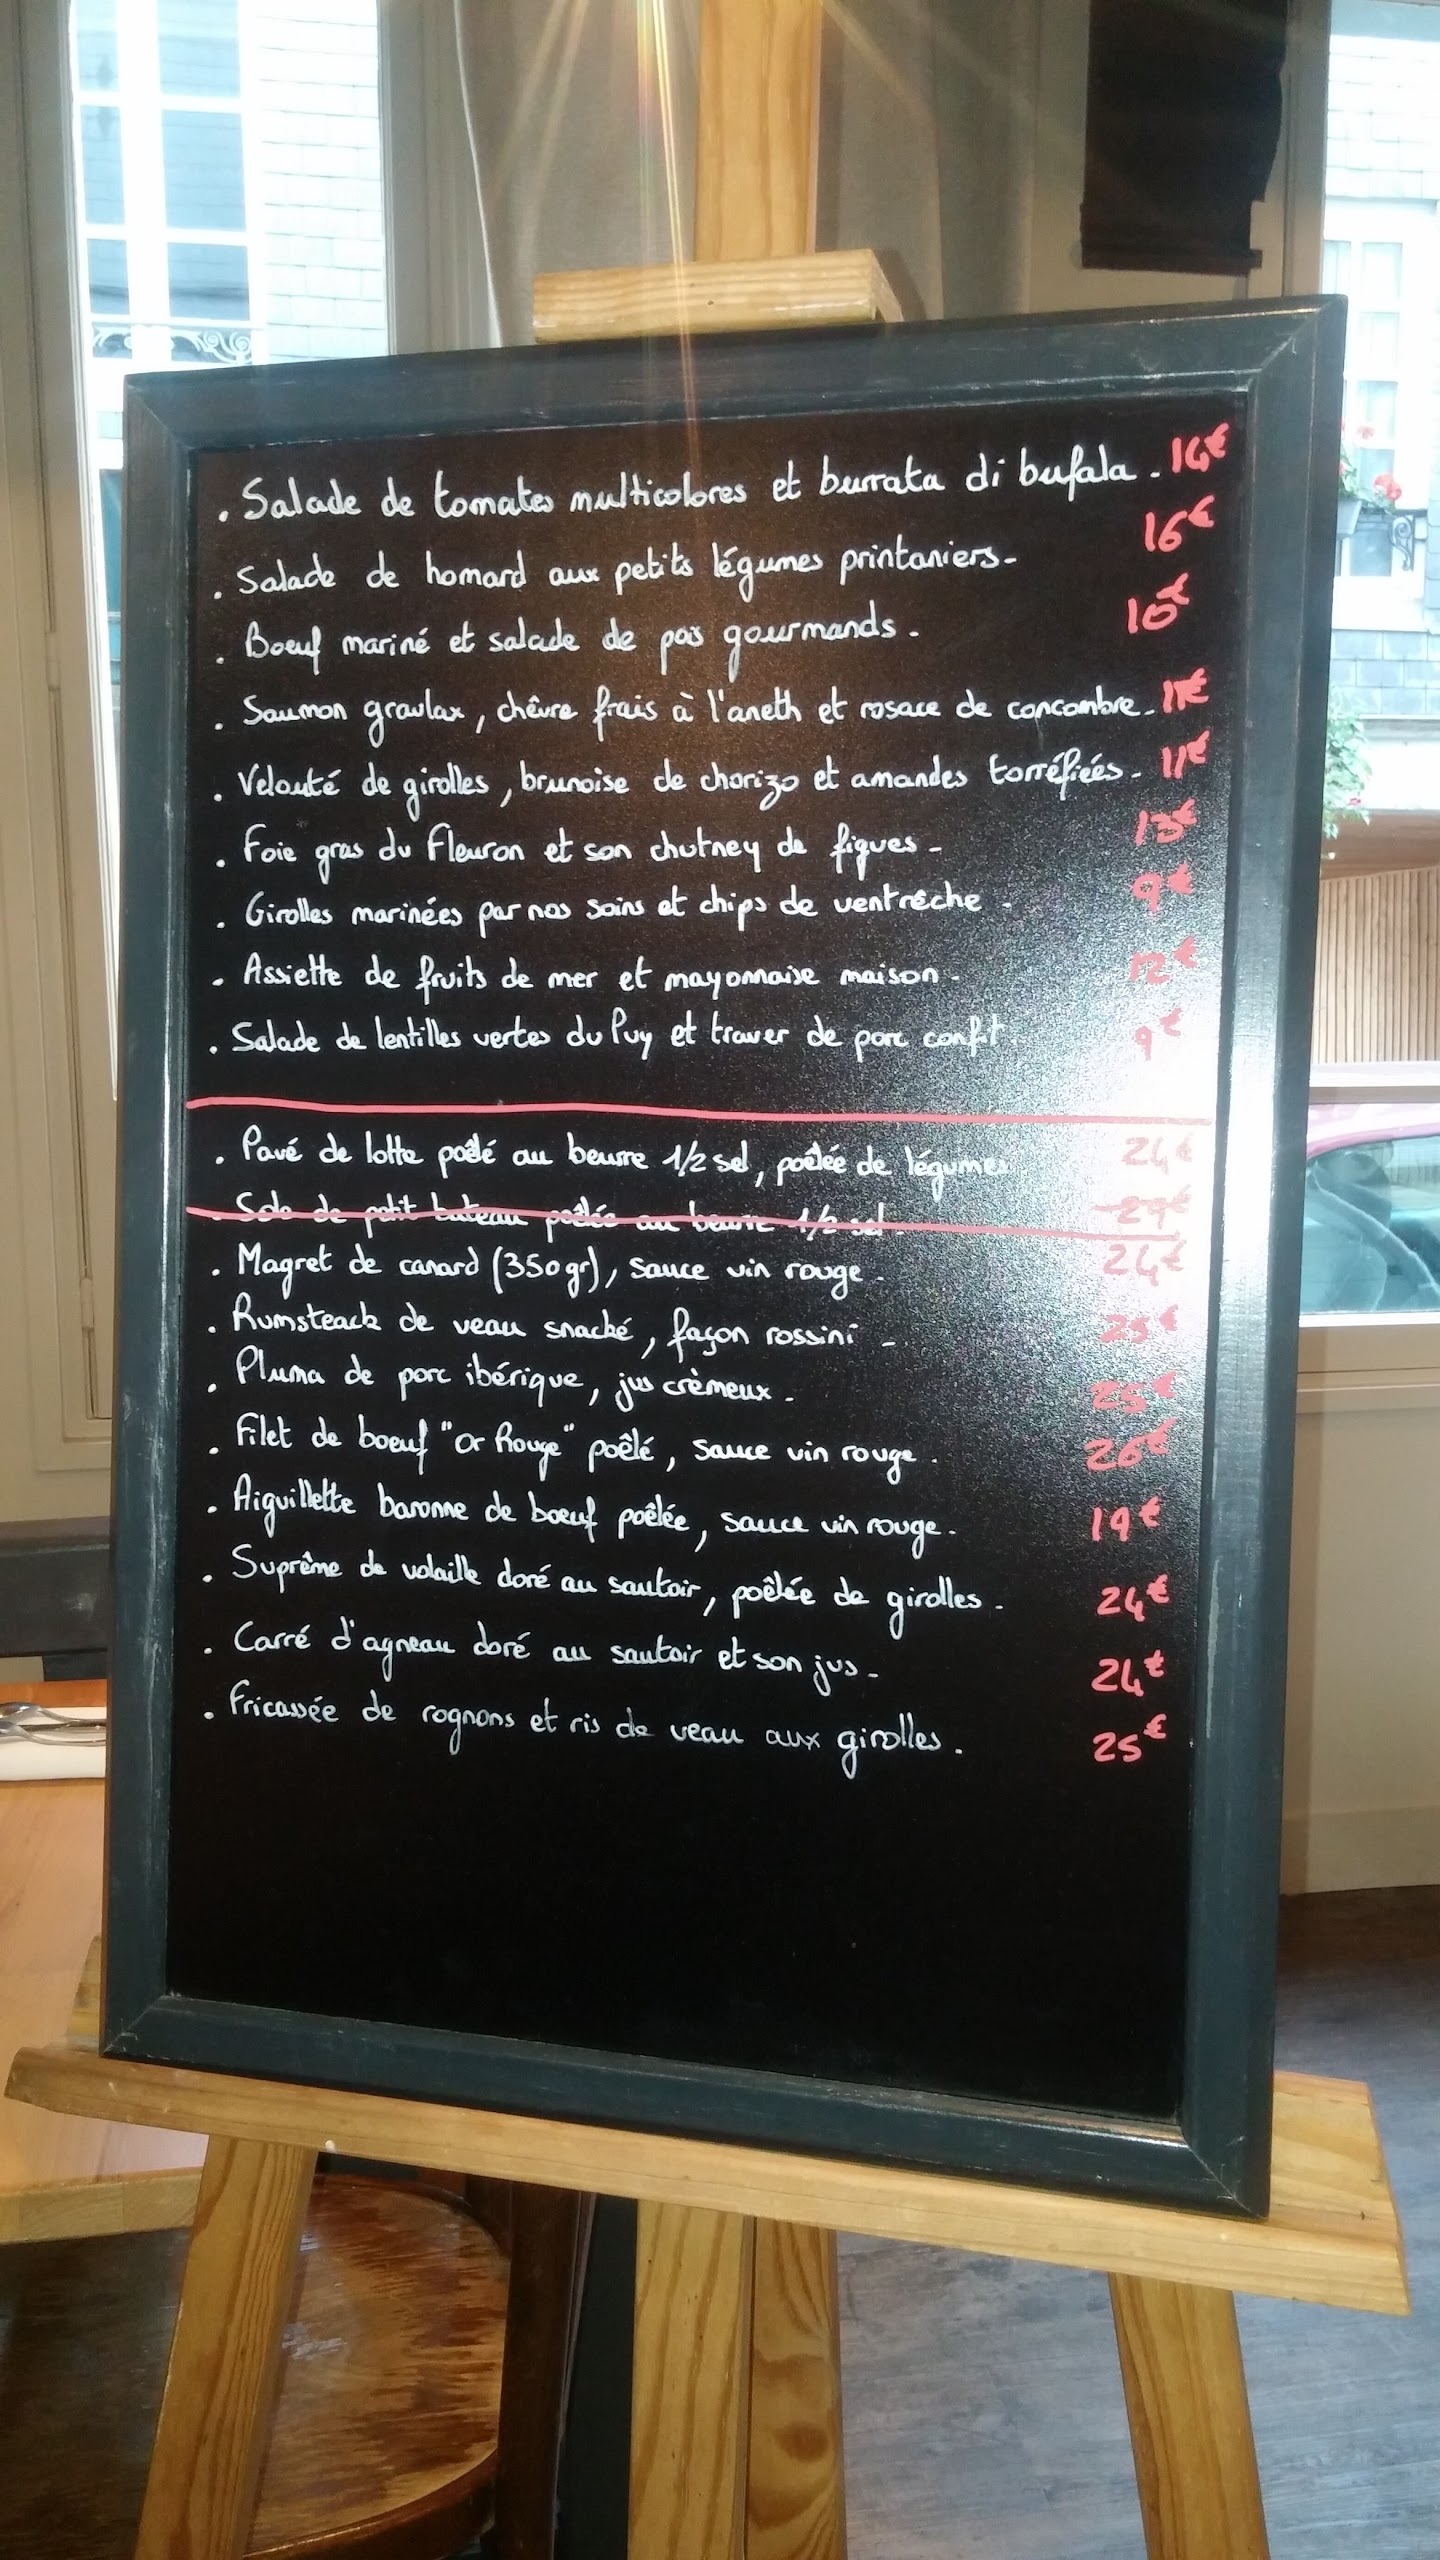 . Salade de tomates multicolores et burrata di bufala. 14€
. Salade de homard aux petits légumes printaniers. 16€
. Boeuf mariné et salade de pois gourmands. 10€
. Saumon gravlax, chêvre frais à l'aneth et rosace de concombre. 11€
. Velouté de girolles, brunoise de chorizo et amandes torréfiées. 11€
. Foie gras du Fleuron et son chutney de figues. 13€
. Girolles marinées par nos soins et chips de ventrêche. 9€
. Assiette de fruits de mer et mayonnaise maison. 12€
. Salade de lentilles vertes du Puy et traver de porc confit. 9€
. Pavé de lotte poêlé au beurre 1/2 sel, poêlée de légumes 24€
. Sole de petit bateau poêlée au beurre 1/2 sel. 27€
. Magret de canard (350gr), sauce vin rouge. 24€
. Rumsteack de veau snacké, façon rossini. 25€
. Pluma de porc ibérique, jus crèmeux. 25€
. Filet de boeuf "Or Rouge" poêlé, sauce vin rouge. 26€
. Aiguillette baronne de boeuf poêlée, sauce vin rouge. 19€
. Suprême de volaille doré au sautoir, poêlée de girolles. 24€
. Carré d'agneau doré au sautoir et son jus. 24€
. Fricassée de rognons et ris de veau aux girolles. 25€